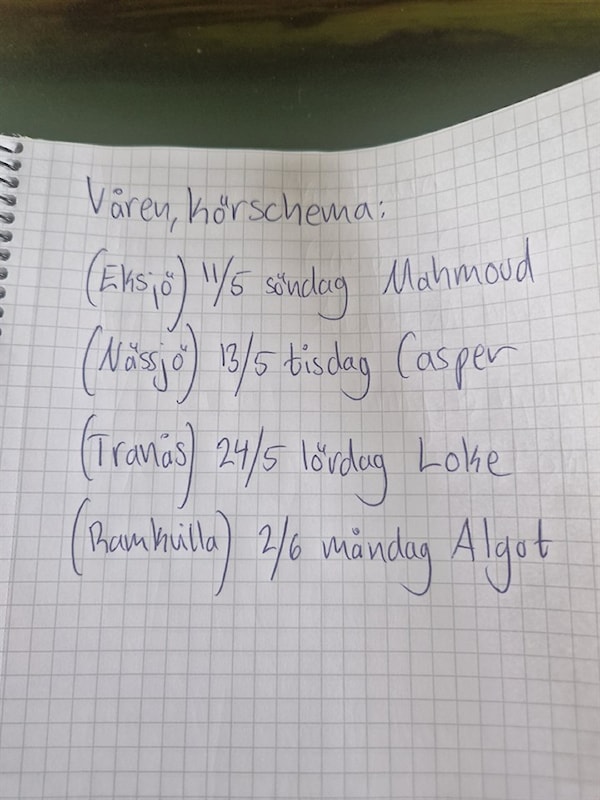 Våren, körschema:
(Eksjö) 11/5 söndag Mahmoud
(Nässjö) 13/5 tisdag Casper
(Tranås) 24/5 lördag Loke
(Ramkvilla) 2/6 måndag Algot